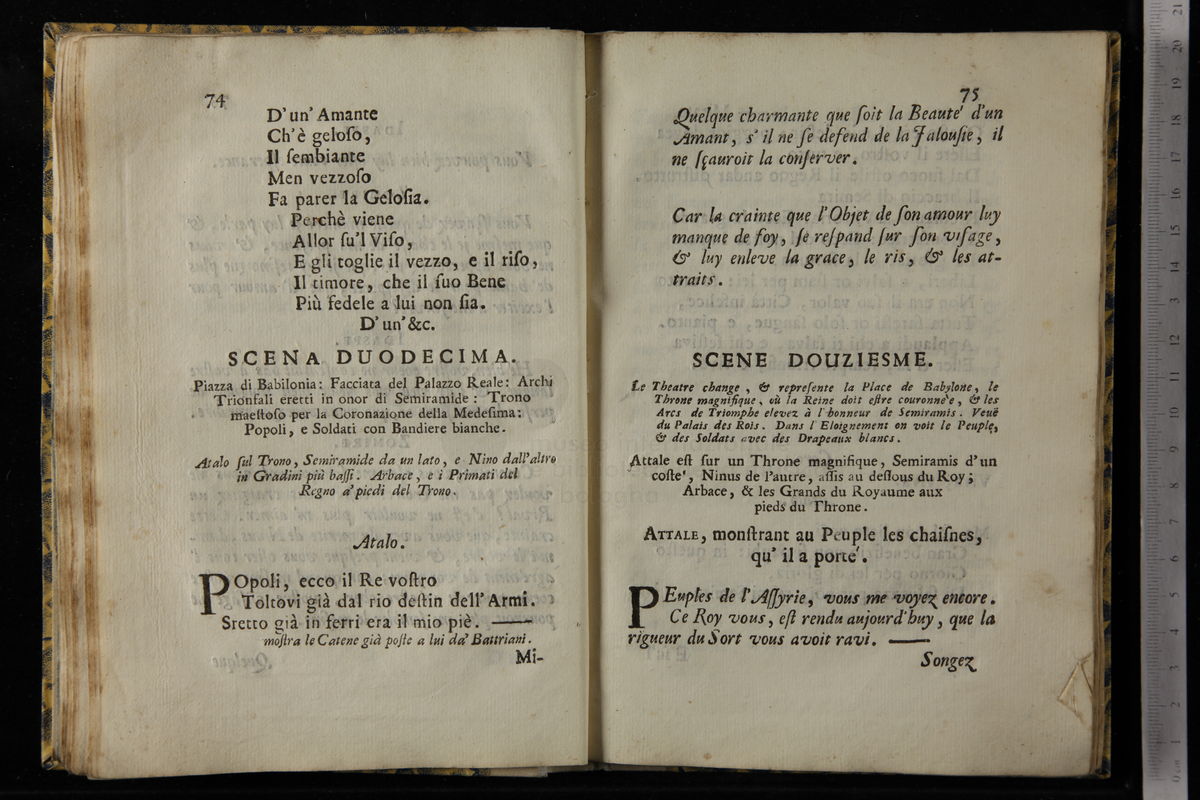 74
D'un' Amante
Ch'è geloſo,
Il ſembiante
Men vezzoſo
Fa parer la Geloſia.
Perchè viene
Allor ſu'l Viſo,
E gli toglie il vezzo, e il riſo,
Il timore, che il ſuo Bene
Più fedele a lui non ſia.
D'un' &c.
SCENA DUODECIMA.
Piazza di Babilonia: Facciata del Palazzo Reale: Archi
Trionfali eretti in onor di Semiramide: Trono
maeſtoſo per la Coronazione della Medeſima:
Popoli, e Soldati con Bandiere bianche.
Atalo ſul Trono, Semiramide da un lato, e Nino dall'altro
in Gradini più baſſi. Arbace, e i Primati del
Regno a' piedi del Trono.
Atalo.
POpoli, ecco il Re voſtro
Toltovi già dal rio deſtin dell' Armi.
Sretto già in ferri era il mio piè. ——
moſtra le Catene già poſte a lui da' Battriani.
Mi-
75
Quelque charmante que ſoit la Beauté d'un
Amant, s' il ne ſe defend de la Jalouſie, il
ne ſçauroit la conſerver.
Car la crainte que l'Objet de ſon amour luy
manque de foy, ſe reſpand ſur ſon viſage,
& luy enleve la grace, le ris, & les at-
traits.
SCENE DOUZIESME.
Le Theatre change, & repreſente la Place de Babylone, le
Throne magnifique, où la Reine doit eſtre couronne'e, & les
Arcs de Triomphe elevez à l'honneur de Semiramis. Veuë
du Palais des Rois. Dans l'Eloignement on voit le Peuple,
& des Soldats avec des Drapeaux blancs.
Attale eſt ſur un Throne magnifique, Semiramis d'un
coſte', Ninus de l'autre, aſſis au deſſous du Roy;
Arbace, & les Grands du Royaume aux
pieds du Throne.
ATTALE, monſtrant au Peuple les chaiſnes,
qu' il a porté.
PEuples de l'Aſſyrie, vous me voyez encore.
Ce Roy vous, eſt rendu aujourd'huy, que la
rigueur du Sort vous avoit ravi. ——
Songez